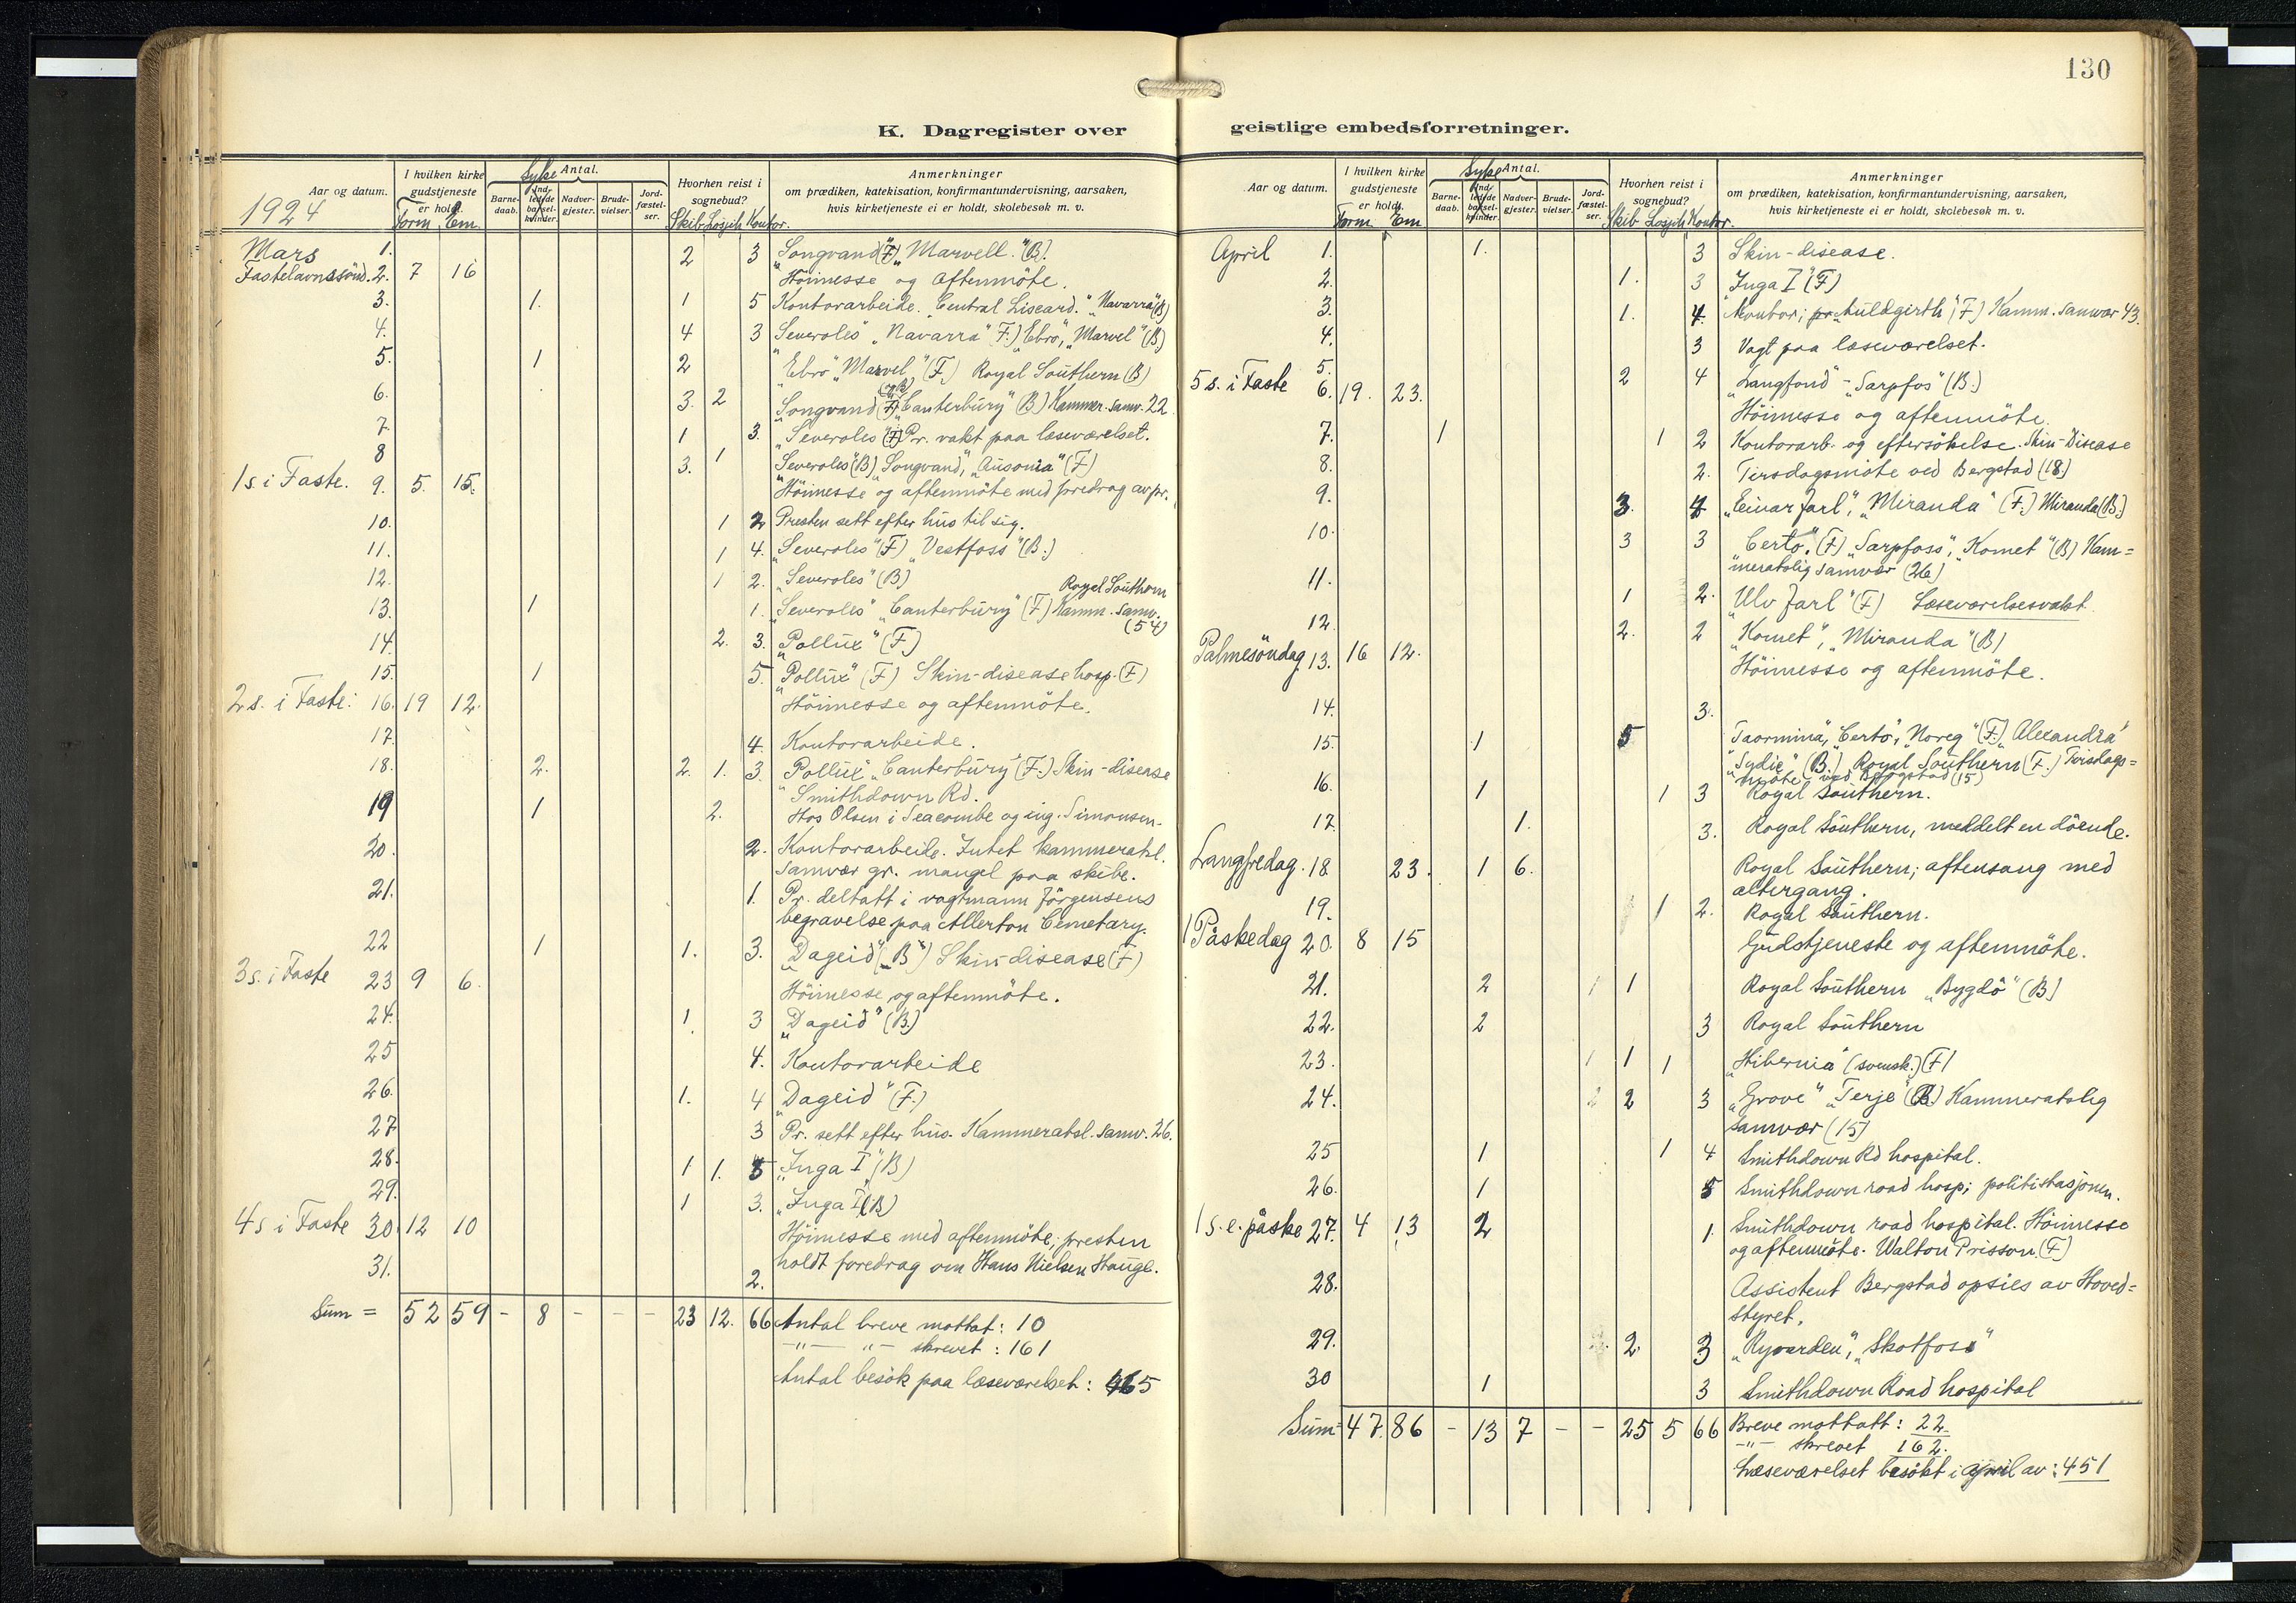 130
K. Dagregister over
geistlige embedsforretninger.
Aar og datum.
1924
I hvilken kirke gudstjeneste er holdt.
Form. Em.
Syke Antal.
Barne-daab.
Ind-ledede barsel-kvinder.
Nadver-gjester.
Brude-vielser.
Jord-fæstel-ser.
Hvorhen reist i sognebud?
Skib Losjih Kontor.
Anmerkninger
om prædiken, katekisation, konfirmantundervisning, aarsaken,
hvis kirketjeneste ei er holdt, skolebesøk m. v.
Mars 1. 2 3 "Songvand" (F) "Marvell." (B).
Fastelavnssönd. 2. 7 16 Höimesse og aftenmöte.
3. 1. 1 5 Kontorarbeide. "Central Liseard." "Navarra" (B)
4. 4 3 "Severoles" "Navarra" (F.) "Ebro", "Marvel" (B.)
5. 1 2 "Ebro" "Marvel" (F.) Royal Southern (B)
6. 3. 2 "Songvand (F) (og B) "Canterbury" (B) Kammer. samv. 22
7. 1 3. "Severoles" (F) Pr. vakt paa læseværelset.
8 3. 1 "Severoles" (B) "Songvand", "Ausonia" (F)
1 s. i Faste. 9. 5. 15. Höimesse og aftenmöte med foredrag av pr.
10. 1 2 Presten sett efter hus til sig.
11. 1 4. "Severoles" (F) "Vestfoss" (B.)
12. 1 2. "Severoles" (B) Royal Southern
13. 1 1. "Severoles" "Canterbury" (F) Kamm. samv. (54)
14. 2. 3. "Pollux" (F.)
15. 1 5. "Pollux" (F) Skin-disease hosp. (F)
2 s. i Faste: 16. 19 12. Höimesse og aftenmöte.
17. 4. Kontorarbeide.
18. 2. 2. 1. 3. "Pollux" "Canterbury" (F.) Skin-disease
Smithdown Rd.
19 1 2. Hos Olsen i Seacombe og ing. Simonsen.
20. 2. Kontorarbeide. Intet kammeratsl.
samvær gr. mangel paa skibe.
21. 1. Pr. deltatt i vagtmann Jörgensens
begravelse paa Allerton Cemetary.
22 1 1. 3. "Dageid" (B) Skin-disease (F)
3 s. i Faste 23 9 6. Höimesse og aftenmöte.
24. 1. 3 "Dageid" (B.)
25 4. Kontorarbeide
26. 1. 4 "Dageid" (F.)
27 3 Pr. sett efter hus. Kammeratsl. samv. 26.
28. 1 1. 5 "Inga I" (B)
29. 1 3. "Inga I" (B)
4 s i Faste 30. 12 10 Höimesse med aftenmöte; presten
holdt foredrag om Hans Nielsen Hauge.
31. 2.
Sum = 52 59 - 8 - - - 23 12. 66 Antal breve mottat: 10
-"- "- skrevet: 161
Antal besök paa læseværelset: 465
Aar og datum.
I hvilken kirke gudstjeneste er holdt.
Form. Em
Syke Antal.
Barne-daab.
Ind-ledede barsel-kvinder.
Nadver-gjester.
Brude-vielser.
Jord-fæstel-ser.
Hvorhen reist i sognebud?
Skib Losjih Kontor.
Anmerkninger
om prædiken, katekisation, konfirmantundervisning, aarsaken,
hvis kirketjeneste ei er holdt, skolebesøk m. v.
April 1. 1. 3 Skin-disease.
2. 1. 3 "Inga I" (F)
3. 1. 4. Kontor; "Auldgirth" (F) Kamm. samvær 43.
4. 3 Vagt paa læseværelset.
5. 2 4 "Langfond" - "Sarpfos" (B.)
5 s. i Faste 6. 19. 23. Höimesse og aftenmöte.
7. 1 1 2 Kontorarb. og eftersökelse. Skin-Disease
8. 2. Tirsdagsmöte ved Bergstad (18)
9. 3. 4 "Einar Jarl", "Miranda" (F.) Miranda (B.)
10. 3 3 "Certo". (F) "Sarpfoss", "Komet" (B) Kam=
meratslig samvær (26)
11. 1 2. "Ulv Jarl" (F) Læseværelsesvakt
12. 2. 2 "Komet", "Miranda" (B)
Palmesöndag 13. 16 12. Höimesse og aftenmöte.
14. 3.
15. 1 5 "Taormina", "Certo", "Noreg" (F.) "Alexandra"
"Sydic" (B.) Royal Southern (F.) Tirsdags=
möte ved Bergstad (15)
16. 1 1 3 Royal Southern.
17 1. 3. Royal Southern, meddelt en döende.
Langfredag. 18. 23. 1 6. Royal Southern; aftensang med
altergang.
19. 1 2. Royal Southern.
1 Påskedag 20. 8 15 Gudstjeneste og aftenmöte.
21. 2 1 1 Royal Southern "Bygdö" (B)
22. 2 3 Royal Southern
23. 1 1 1 "Hibernia" (svensk.) (F)
24. 2 2 3 "Grove" "Terje" (B) Kammeratslig
samvær (15)
25 1 1 4 Smithdown Rd hospital.
26. 1 5 Smithdown road hosp; politistasjonen.
1 s. e. påske 27. 4 13 2 1. Smithdown road hospital. Höimesse
og aftenmöte. Walton Prisson. (F)
28. Assistent Bergstad opsies av Hoved=
styret.
29. 2. 3 "Ryvarden", "Skotfoss"
30 1 3 Smithdown Road hospital
Sum = 47. 86 - 13 7 - - 25 5 66 Breve mottatt: 22.
-"- skrevet 162.
Læseværelset besökt i april av: 451